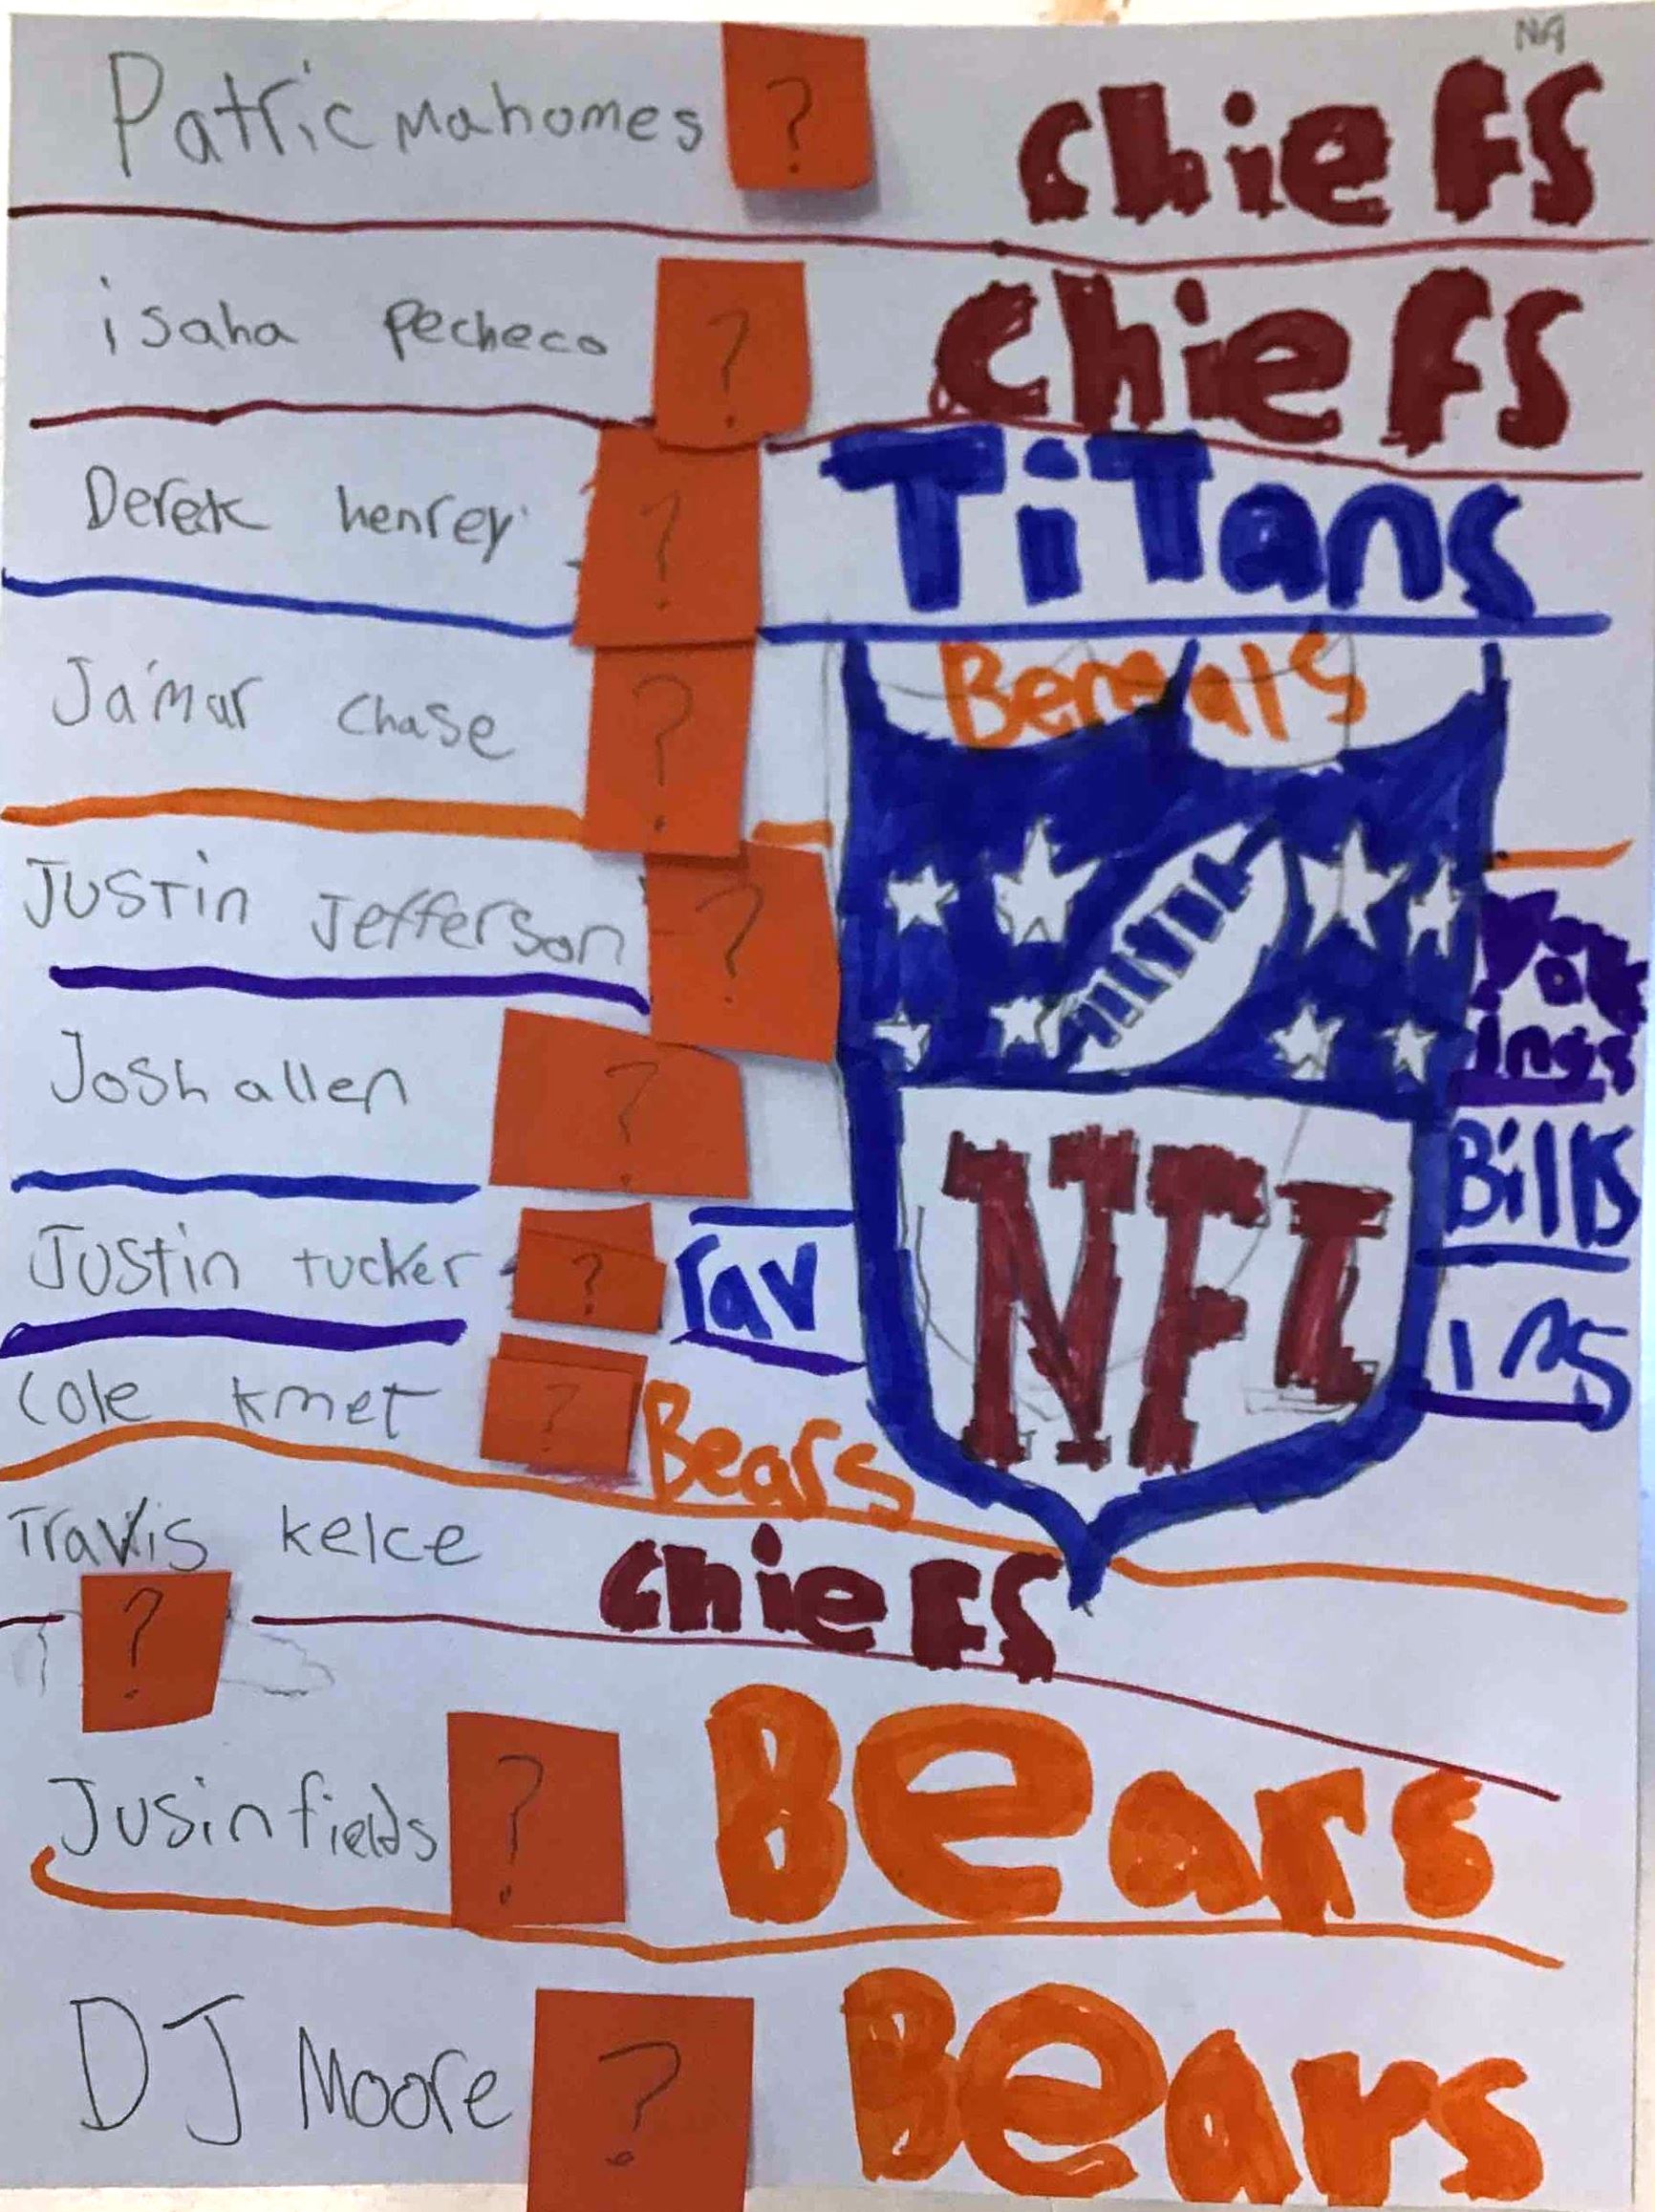 NA
Patric Mahomes ? Chiefs
isaha Pecheco ? Chiefs
Derek henrey ? TiTans
Ja'mar Chase ? Bengals
JUSTin Jefferson ?
ings
Josh allen ? Bills
Justin tucker ? rav ins
Cole kmet ? Bears
NFL
Travis kelce Chiefs
?
Jusin fields ? Bears
DJ Moore ? Bears